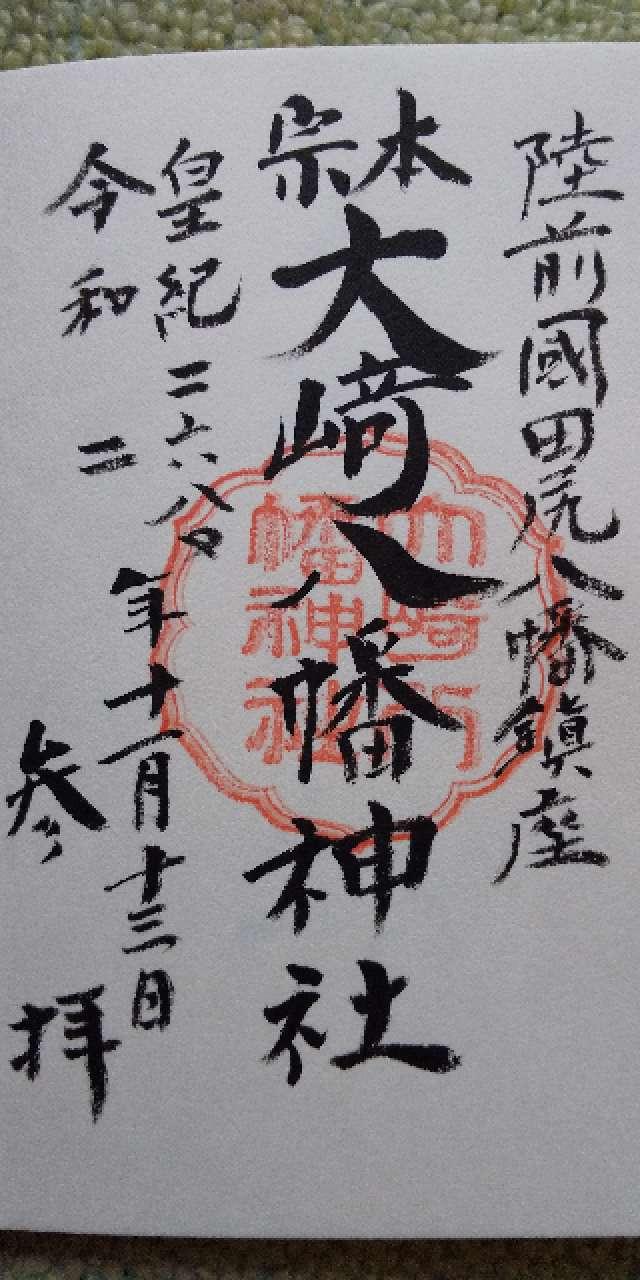 陸前國田尻八幡鎮座
本宗
大﨑八幡神社
大崎八幡神社
皇紀二六八〇
令和二
年十一月十三日
参拝